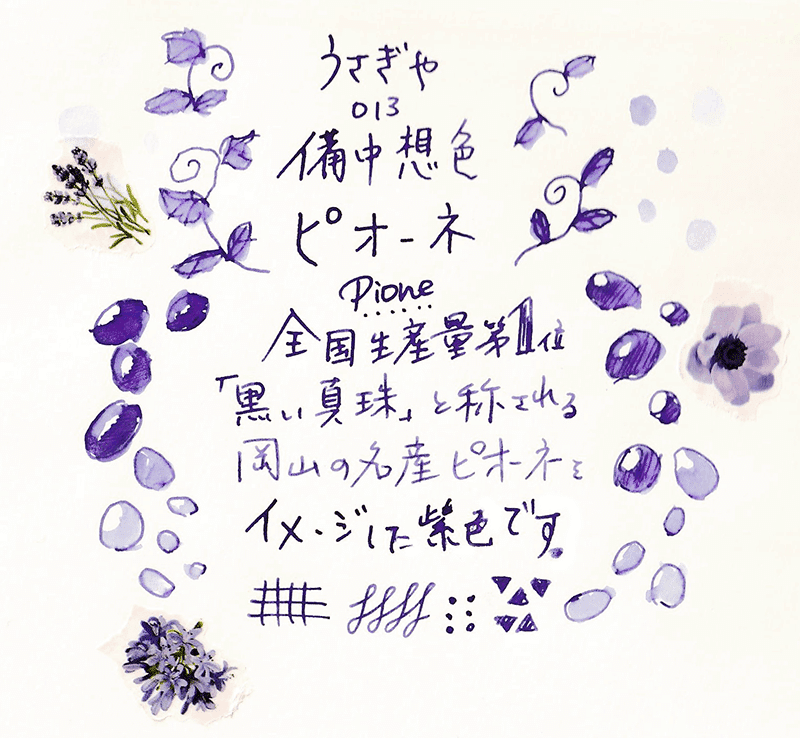 うさぎや
013
備中想色
ピオーネ
Pione
全国生産量第1位
「黒い真珠」と称される
岡山の名産ピオーネを
イメージした紫色です。